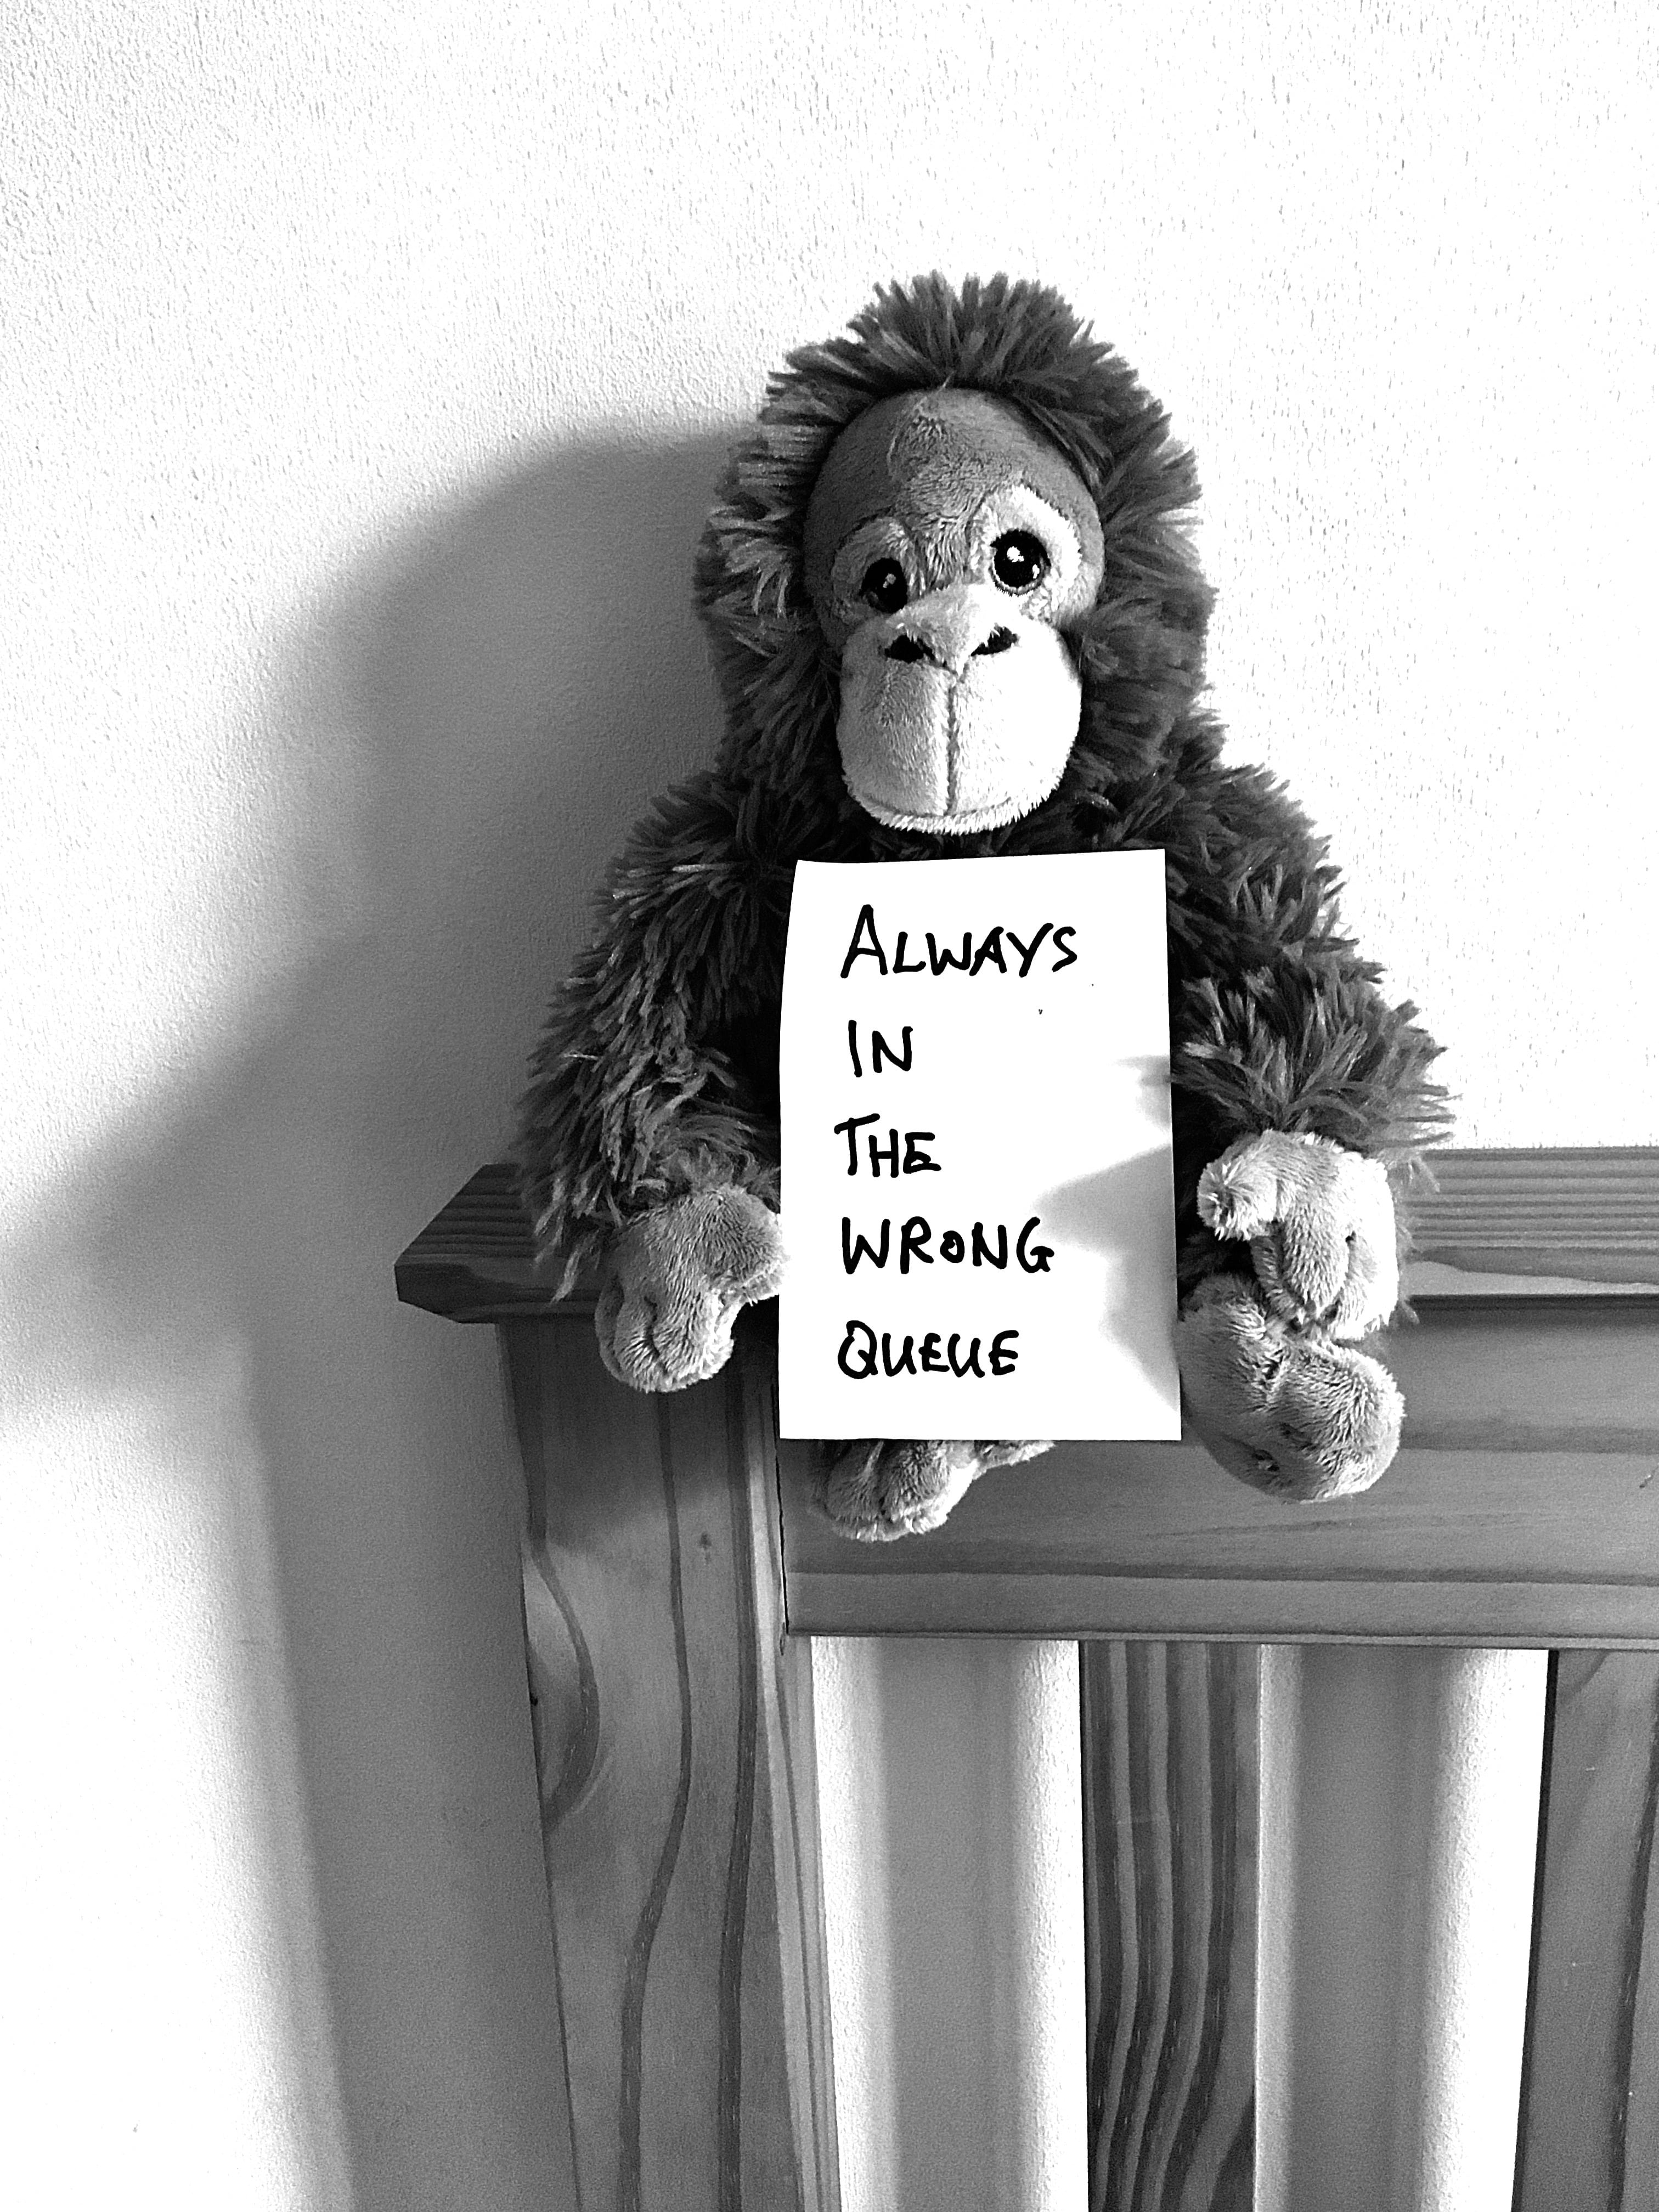 ALWAYS
IN
THE
WRONG
QUEUE